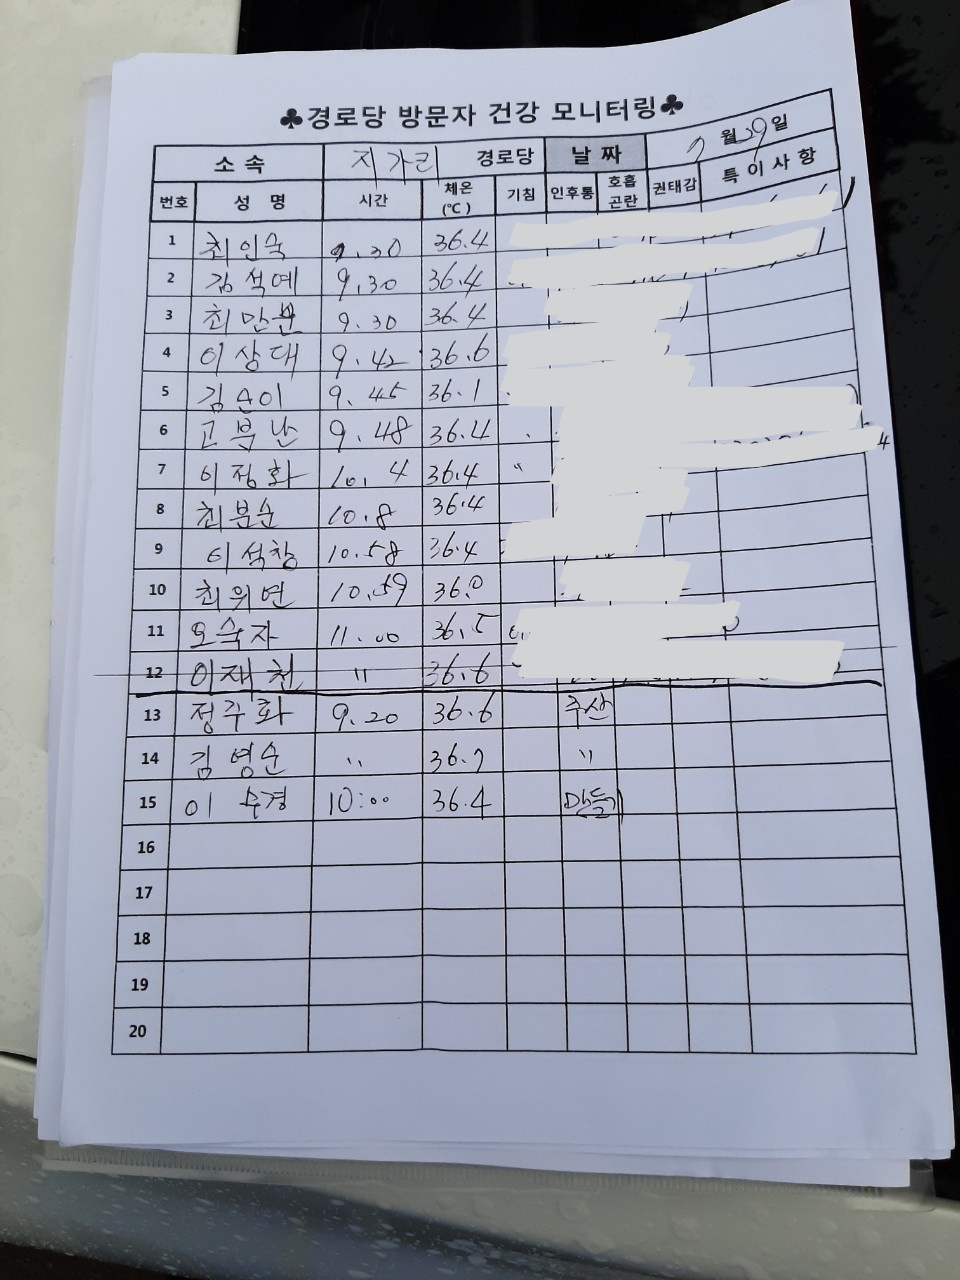 ♣경로당 방문자 건강 모니터링♣
소 속 지가리 경로당 날 짜 7월 29일
번호 성 명 시간 체온(℃) 기침 인후통 호흡곤란 권태감 특이사항
1 최인숙 9.30 36.4
2 김석예 9.30 36.4
3 최만분 9.30 36.4
4 이상대 9.42 36.6
5 김순이 9.45 36.1
6 고분난 9.48 36.4
7 이정화 10.4 36.4 "
8 최분순 10.8 36.4
9 이석창 10.58 36.4
10 최위연 10.59 36.0
11 오숙자 11.00 36.5
12 이재천 " 36.6
13 정주화 9.20 36.6 주산
14 김영순 " 36.7 "
15 이수경 10:00 36.4 만들기
16
17
18
19
20